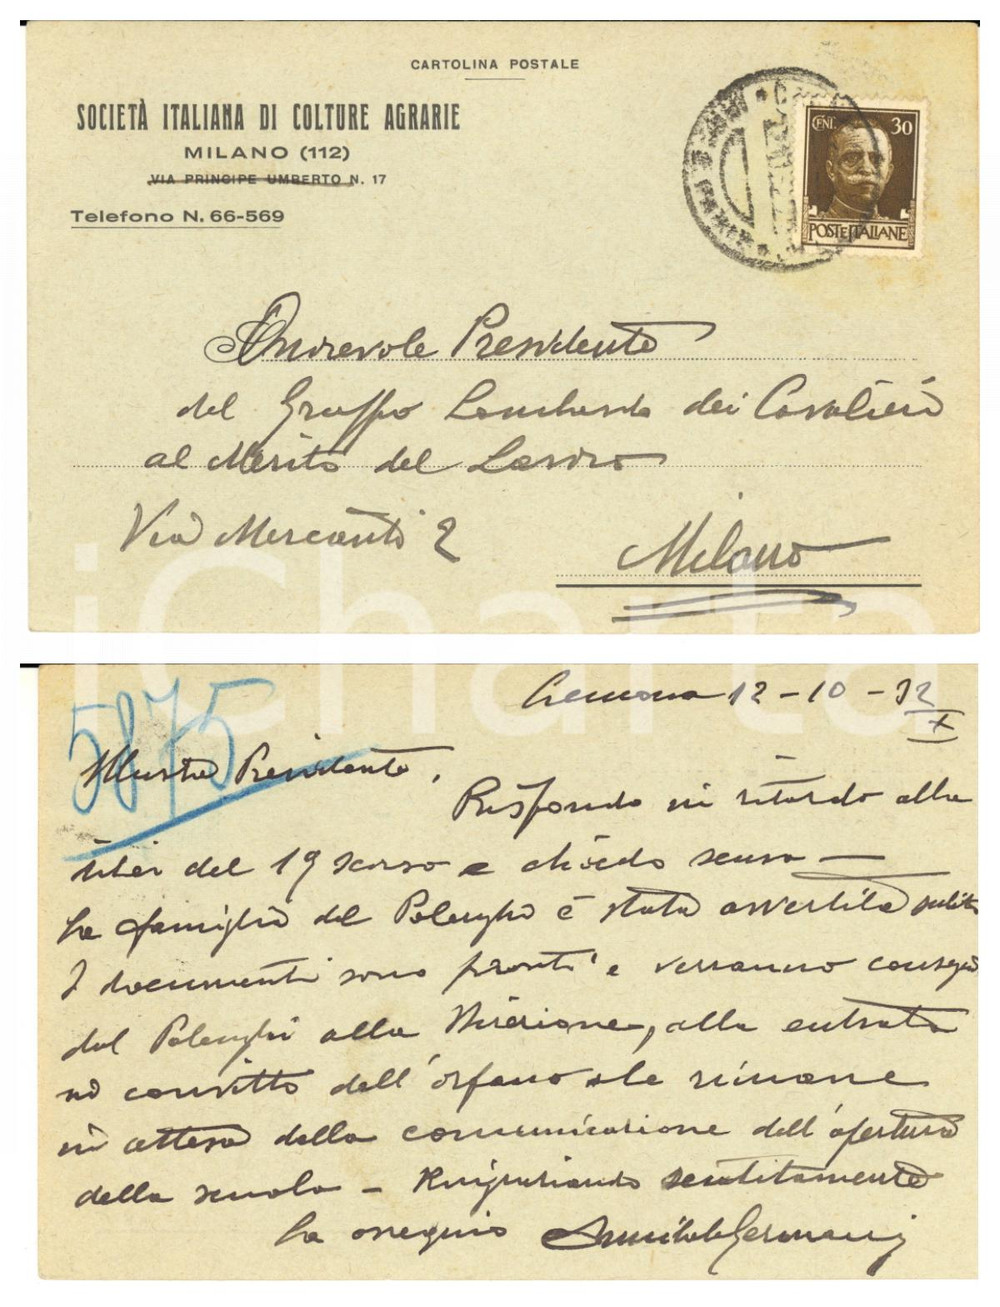 CARTOLINA POSTALE
SOCIETÀ ITALIANA DI COLTURE AGRARIE
MILANO (112)
VIA PRINCIPE UMBERTO N. 17
Telefono N. 66-569
CENT. 30
POSTE ITALIANE
Onorevole Presidente
del Gruppo Lombardo dei Cavalieri
al Merito del Lavoro
Via Mercanti 2
Milano
iCharta
5875
Cremona 12-10-32
X
Illustre Presidente,
Rispondo in ritardo alla
del 19 scorso e chiedo scusa —
La famiglia del Polenghi è stata avvertita subito
I documenti sono pronti e verranno
dal Polenghi alla Direzione, alla entrata
in convitto dell'orfano che rimane
in attesa della comunicazione dell'apertura
della scuola — Ringraziando sentitamente
La ossequio Germani